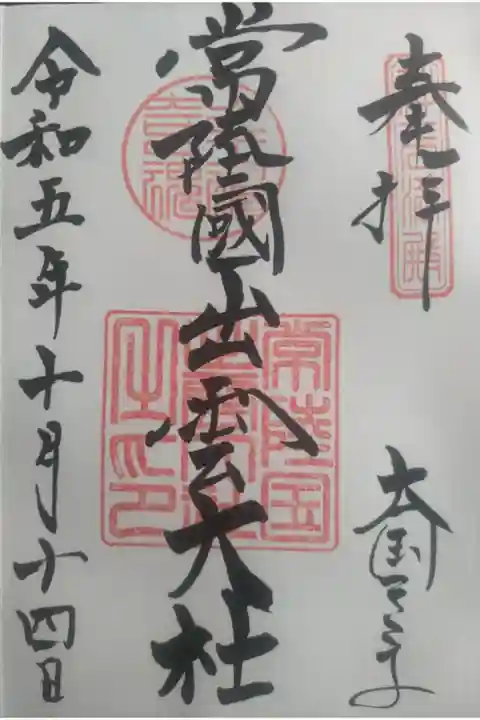 奉拝
大国みたま
常陸國出雲大社
常陸国出雲大社之印
令和五年十月十四日